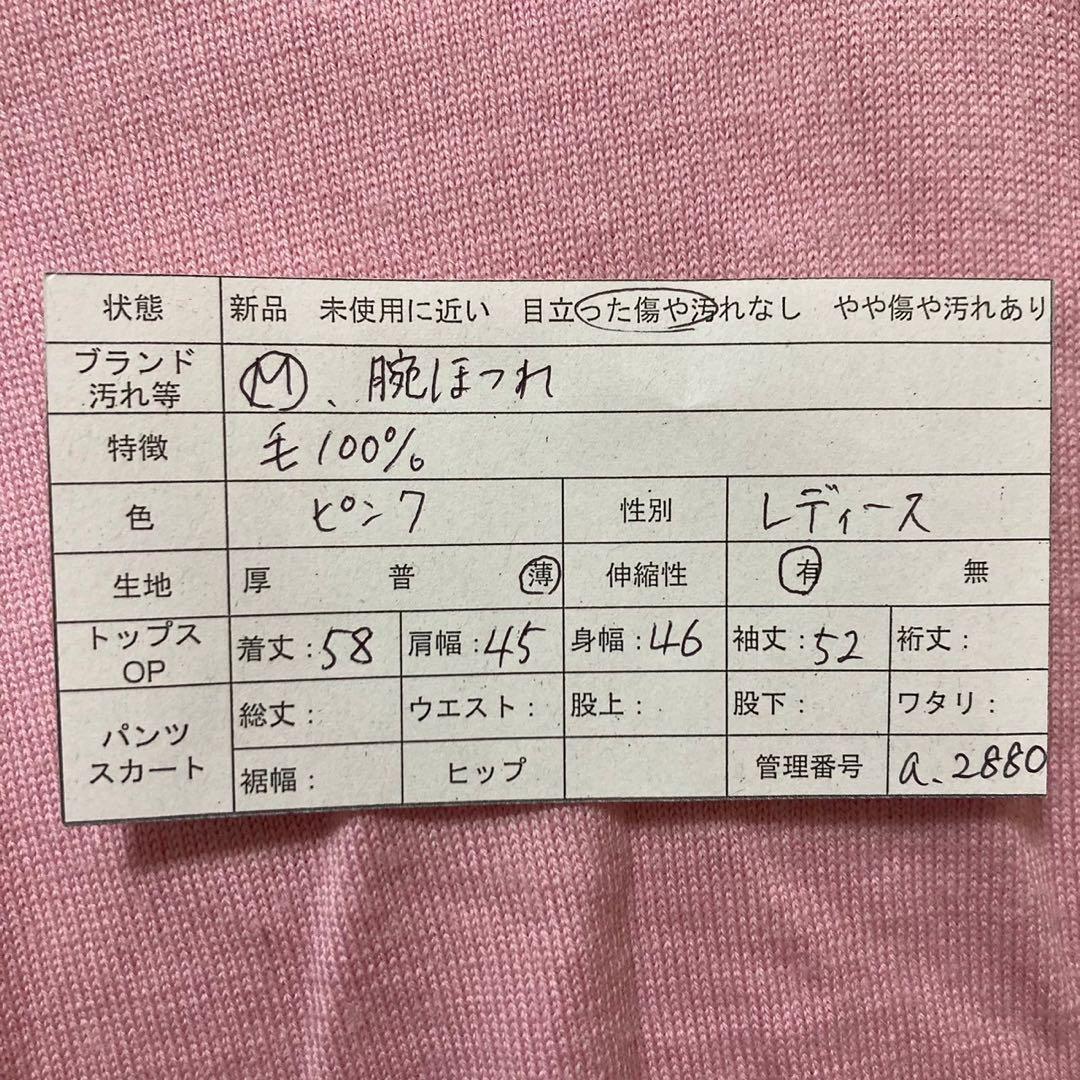 状態 新品 未使用に近い 目立った傷や汚れなし やや傷や汚れあり
ブランド
汚れ等 M、腕ほつれ
特徴 毛100%
色 ピンク 性別 レディース
生地 厚 普 薄 伸縮性 有 無
トップス
OP 着丈:58 肩幅:45 身幅:46 袖丈:52 裄丈:
パンツ
スカート 総丈: ウエスト: 股上: 股下: ワタリ:
裾幅: ヒップ 管理番号 a.2880